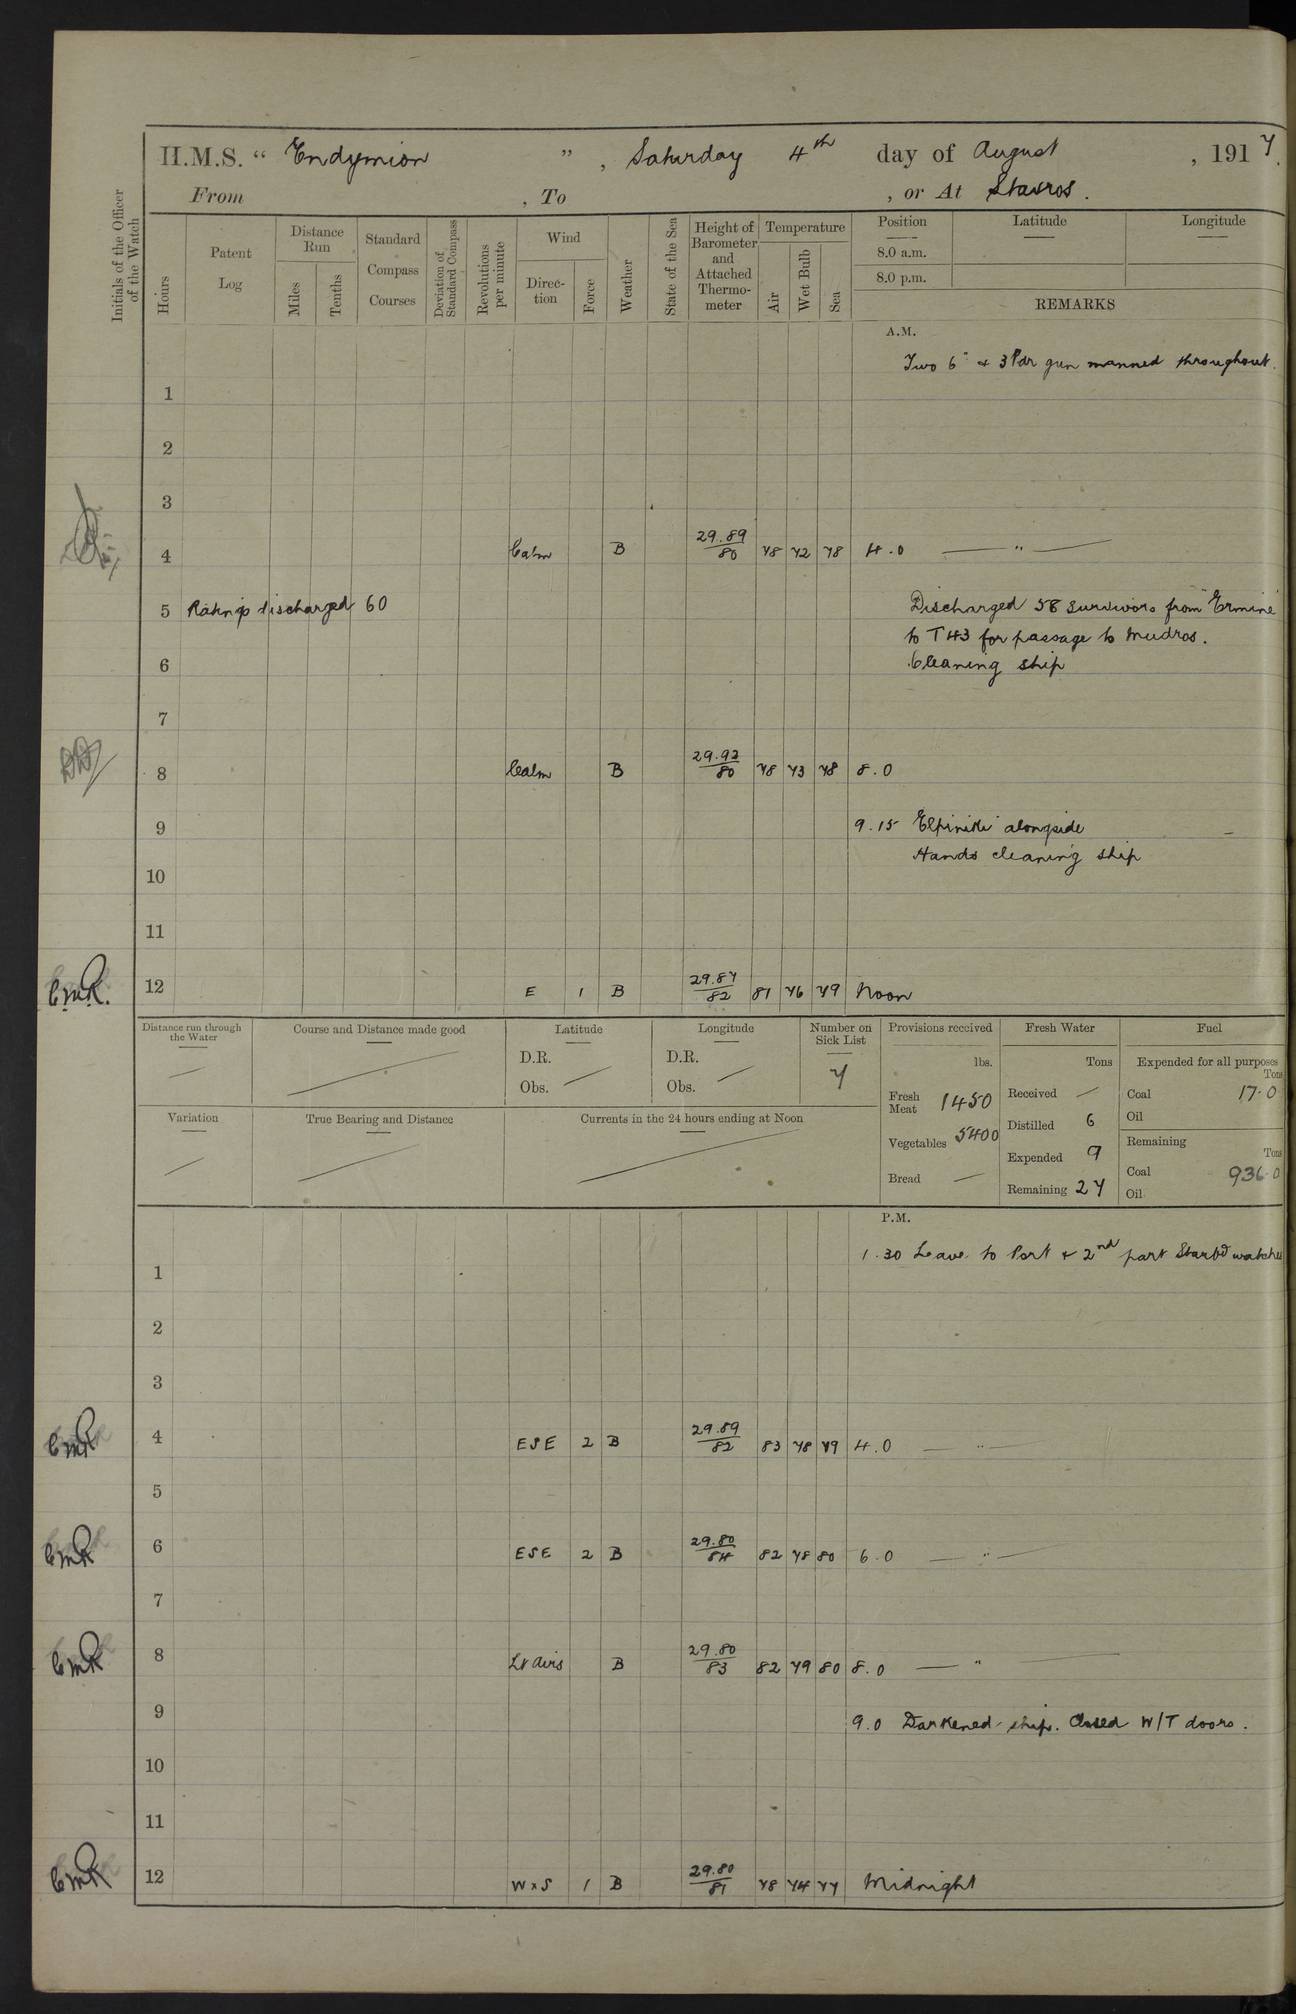 H.M.S. “ Endymion ” , Saturday 4th day of August , 1917.
From , To , or At Stavros.
Initials of the Officer of the Watch
Hours
Patent Log
Distance Run
Miles
Tenths
Standard Compass Courses
Deviation of Standard Compass
Revolutions per minute
Wind
Direction
Force
Weather
State of the Sea
Height of Barometer and Attached Thermometer
Temperature
Air
Wet Bulb
Sea
Position Latitude Longitude
8.0 a.m.
8.0 p.m.
REMARKS
A.M.
Two 6" & 3 Pdr gun manned throughout.
1
2
3
4 Calm B 29.89/80 78 72 78 4.0 — " —
5 Ratings discharged 60 Discharged 58 survivors from "Ermine"
to T 43 for passage to Mudros.
6 Cleaning ship
7
8 Calm B 29.92/80 78 73 78 8.0
9 9.15 "Elpiniki" alongside
Hands cleaning ship
10
11
CMR. 12 E 1 B 29.87/82 81 76 79 Noon
Distance run through the Water —
Course and Distance made good —
Latitude
D.R.
Obs. —
Longitude
D.R.
Obs. —
Number on Sick List
7
Variation —
True Bearing and Distance —
Currents in the 24 hours ending at Noon —
Provisions received
lbs.
Fresh Meat 1450
Vegetables 5400
Bread —
Fresh Water
Tons
Received —
Distilled 6
Expended 9
Remaining 27
Fuel
Expended for all purposes
Tons
Coal 17.0
Oil
Remaining
Tons
Coal 936.0
Oil
P.M.
1.30 Leave to Port & 2nd part Starbd watches
1
2
3
CMR 4 ESE 2 B 29.89/82 83 78 79 4.0 — " —
5
CMR 6 ESE 2 B 29.80/84 82 78 80 6.0 — " —
7
CMR 8 Lt airs B 29.80/83 82 79 80 8.0 — " —
9 9.0 Darkened ship. Closed W/T doors.
10
11
CMR 12 WxS 1 B 29.80/81 78 74 77 Midnight